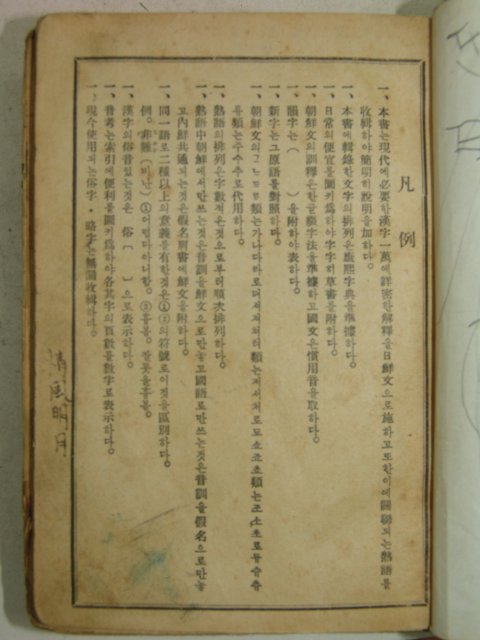 凡 例
一、本書는現代에必要한漢字一萬에詳密한解釋을日鮮文으로施하고또한이에關聯되는熟語를
收輯하야簡明히說明을加하다。
一、本書에輯錄한文字의排列은康熙字典을準據하다。
一、日常의便宜를圖키爲하야字字히草書를附하다。
一、朝鮮文의訓釋은한글綴字法을準據하고國文은慣用音을取하다。
一、韻字는( )을附하야表하다。
一、新字는그原語를對照하다。
一、朝鮮文의
類는가나다라로
類는
로代用하다。
一、熟語의排列은字數적은것으로부터順次排列하다。
一、熟語中朝鮮에서만쓰는것은音訓을鮮文으로만놓고國語로만쓰는것은音訓을假名으로만놓
고內鮮共通되는것은假名別書에鮮文을附하다。
一、同一語로二種以上의意義를有한것은①②의符號로이것을區別하다。
例。非難(비난)①어렵다아니함。②흉봄。잘못을흉봄。
一、漢字의俗音있는것은 俗( )으로表示하다。
一、音考는索引에便利를圖키爲하야各其字의頁數를數字로表示하다。
一、現今使用되는俗字・略字는無漏收輯하다。
淸風明月